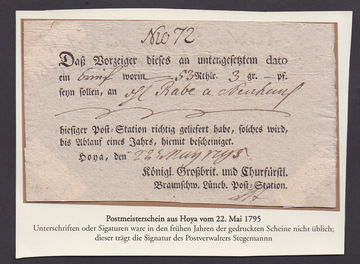 Nro 72
Daß Vorzeiger dieses an untengesetztem dato
ein brief worin 53 Rthlr. 3 gr. – pf.
seyn sollen, an Rabe a
hiesiger Post-Station richtig geliefert habe, solches wird,
bis Ablauf eines Jahrs, hiermit bescheiniget.
Hoya, den 22 May 1795
Königl. Großbrit. und Churfürstl.
Braunschw. Lüneb. Post-Station.
Postmeisterschein aus Hoya vom 22. Mai 1795
Unterschriften oder Sigaturen ware in den frühen Jahren der gedruckten Scheine nicht üblich;
dieser trägt die Signatur des Postverwalters Stegemannn